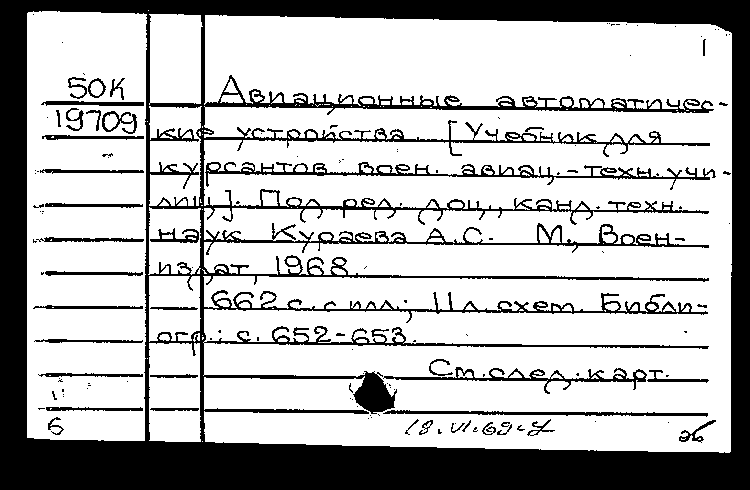 1
50К Авиационные автоматичес-
19709 кие устройства. [Учебник для
курсантов воен. авиац.-техн. учи-
лищ]. Под ред. доц., канд. техн.
наук Кураева А.С. М., Воен-
издат, 1968.
662 с. с илл.; 11 л. схем. Библи-
огр.: с. 652-653.
См. след. карт.
6 18.VI.69-